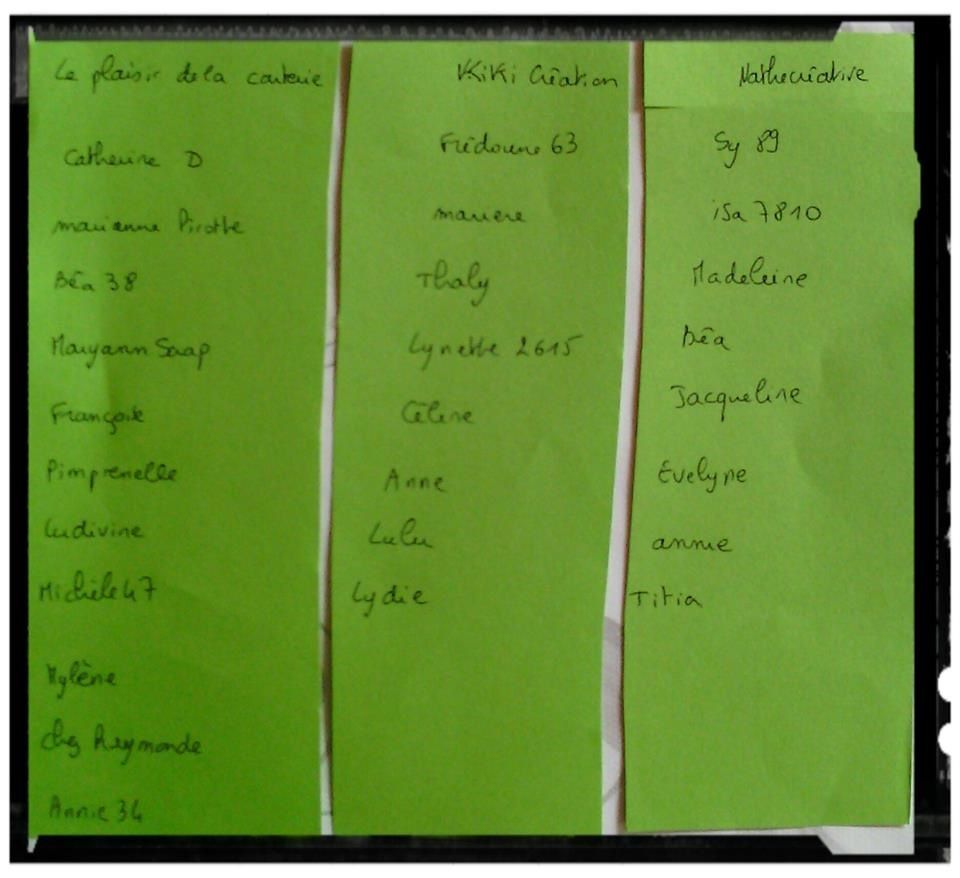 Le plaisir de la carterie
Catherine D
marianne Pirotte
Béa 38
Maryann Scrap
Françoise
Pimprenelle
Ludivine
Michèle 47
Mylène
chez Reymonde
Annie 34
KiKi Création
Frédoune 63
maniere
Thaly
Lynette 2615
Céline
Anne
Lulu
Lydie
Nathecréative
Sy 89
iSa 7810
Madeleine
Béa
Jacqueline
Evelyne
annie
Titia